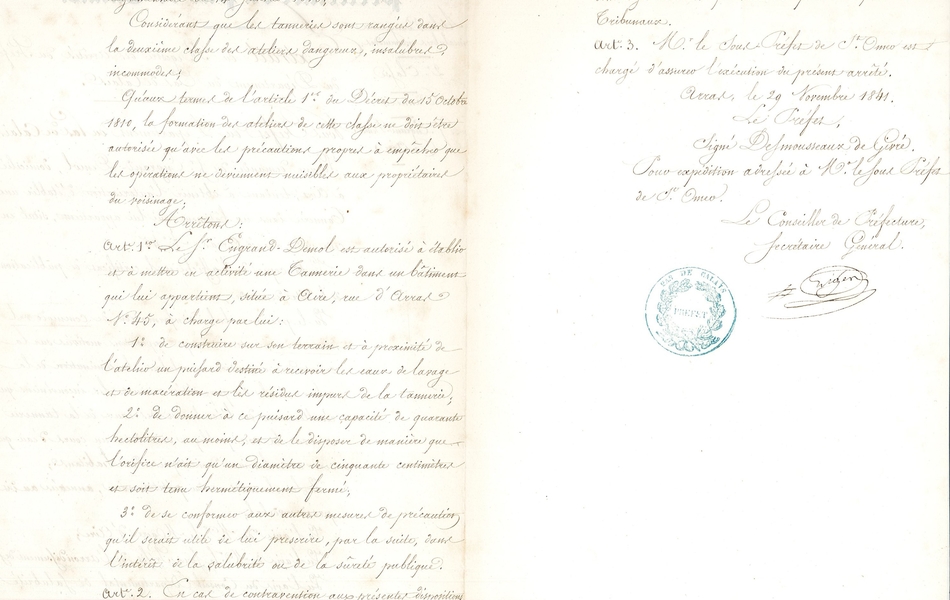 Considérant que les tanneries sont rangées dans
la deuxième classe des ateliers dangereux, insalubres &
incommodes;
Qu'aux termes de l'article 1er du Décret du 15 Octobre
1810, la formation des ateliers de cette classe ne doit être
autorisée qu'avec les précautions propres à empêcher que
les opérations ne deviennent nuisibles aux propriétaires
du voisinage;
Arrêtons:
Art. 1er Le Sr. Engrand-Demol est autorisé à établir
et à mettre en activité une Tannerie dans un bâtiment
qui lui appartient, situé à Aire, rue d'Arras
No. 45, à charge par lui:
1º. de construire sur son terrain et à proximité de
l'atelier un puisard destiné à recevoir les eaux de lavage
et de macération et les résidus impurs de la tannerie;
2º. de donner à ce puisard une capacité de quarante
hectolitres, au moins, et de le disposer de manière que
l'orifice n'ait qu'un diamètre de cinquante centimètres
et soit tenu hermétiquement fermé;
3º. de se conformer aux autres mesures de précaution
qu'il serait utile de lui prescrire, par la suite, dans
l'intérêt de la salubrité ou de la sûreté publique.
Art. 2. En cas de contravention aux présentes dispositions
Tribunaux.
Art. 3. Mr. le Sous Préfet de St. Omer est
chargé d'assurer l'exécution du présent arrêté.
Arras, le 29 Novembre 1841.
Le Préfet,
Signé Desmousseaux de Givré.
Pour expédition adressée à Mr. le Sous Préfet
de St. Omer.
Le Conseiller de Préfecture,
Secrétaire Général.
PAS DE CALAIS
PRÉFET